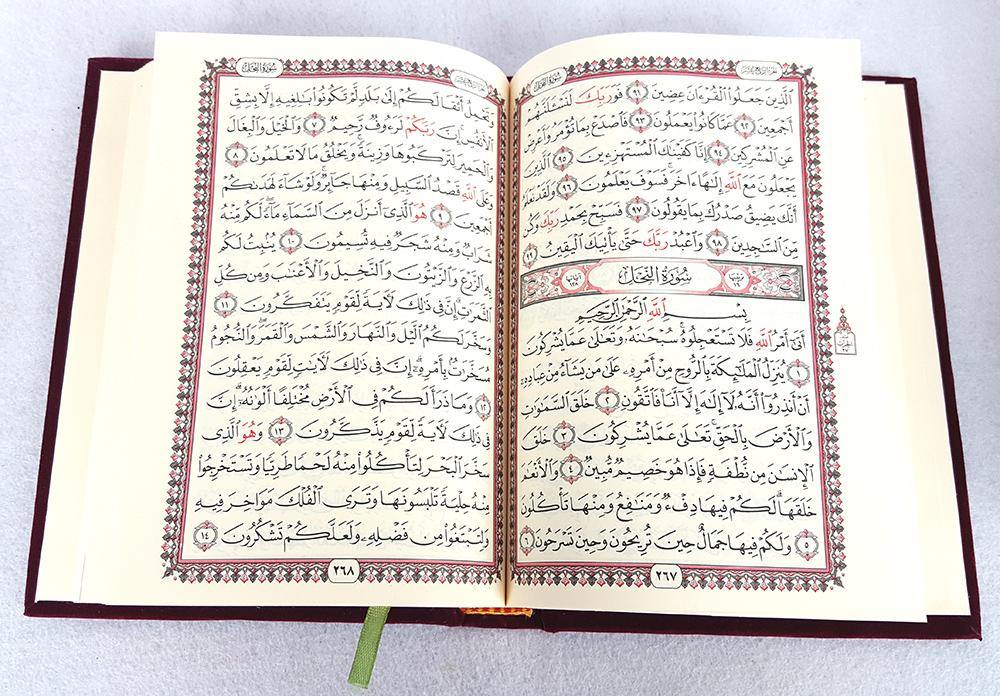 سُورَةُ النَّحْلِ
الَّذِينَ جَعَلُوا۟ الْقُرْءَانَ عِضِينَ ٩١ فَوَرَبِّكَ لَنَسْـَٔلَنَّهُمْ
أَجْمَعِينَ ٩٢ عَمَّا كَانُوا۟ يَعْمَلُونَ ٩٣ فَاصْدَعْ بِمَا تُؤْمَرُ وَأَعْرِضْ
عَنِ الْمُشْرِكِينَ ٩٤ إِنَّا كَفَيْنَٰكَ الْمُسْتَهْزِءِينَ ٩٥ الَّذِينَ
يَجْعَلُونَ مَعَ اللَّهِ إِلَٰهًا ءَاخَرَ فَسَوْفَ يَعْلَمُونَ ٩٦ وَلَقَدْ نَعْلَمُ
أَنَّكَ يَضِيقُ صَدْرُكَ بِمَا يَقُولُونَ ٩٧ فَسَبِّحْ بِحَمْدِ رَبِّكَ وَكُن
مِّنَ السَّٰجِدِينَ ٩٨ وَاعْبُدْ رَبَّكَ حَتَّىٰ يَأْتِيَكَ الْيَقِينُ ٩٩
سُورَةُ النَّحْلِ
بِسْمِ اللَّهِ الرَّحْمَٰنِ الرَّحِيمِ
أَتَىٰٓ أَمْرُ اللَّهِ فَلَا تَسْتَعْجِلُوهُ سُبْحَٰنَهُۥ وَتَعَٰلَىٰ عَمَّا يُشْرِكُونَ
١ يُنَزِّلُ الْمَلَٰٓئِكَةَ بِالرُّوحِ مِنْ أَمْرِهِۦ عَلَىٰ مَن يَشَآءُ مِنْ عِبَادِهِۦٓ
أَنْ أَنذِرُوٓا۟ أَنَّهُۥ لَآ إِلَٰهَ إِلَّآ أَنَا۠ فَاتَّقُونِ ٢ خَلَقَ السَّمَٰوَٰتِ
وَالْأَرْضَ بِالْحَقِّ تَعَٰلَىٰ عَمَّا يُشْرِكُونَ ٣ خَلَقَ
الْإِنسَٰنَ مِن نُّطْفَةٍ فَإِذَا هُوَ خَصِيمٌ مُّبِينٌ ٤ وَالْأَنْعَٰمَ
خَلَقَهَا لَكُمْ فِيهَا دِفْءٌ وَمَنَٰفِعُ وَمِنْهَا تَأْكُلُونَ
٥ وَلَكُمْ فِيهَا جَمَالٌ حِينَ تُرِيحُونَ وَحِينَ تَسْرَحُونَ ٦
٢٦٧
سُورَةُ النَّحْلِ
وَتَحْمِلُ أَثْقَالَكُمْ إِلَىٰ بَلَدٍ لَّمْ تَكُونُوا۟ بَٰلِغِيهِ إِلَّا بِشِقِّ
الْأَنفُسِ إِنَّ رَبَّكُمْ لَرَءُوفٌ رَّحِيمٌ ٧ وَالْخَيْلَ وَالْبِغَالَ
وَالْحَمِيرَ لِتَرْكَبُوهَا وَزِينَةً وَيَخْلُقُ مَا لَا تَعْلَمُونَ ٨
وَعَلَى اللَّهِ قَصْدُ السَّبِيلِ وَمِنْهَا جَآئِرٌ وَلَوْ شَآءَ لَهَدَىٰكُمْ
أَجْمَعِينَ ٩ هُوَ الَّذِىٓ أَنزَلَ مِنَ السَّمَآءِ مَآءً لَّكُم مِّنْهُ
شَرَابٌ وَمِنْهُ شَجَرٌ فِيهِ تُسِيمُونَ ١٠ يُنۢبِتُ لَكُم
بِهِ الزَّرْعَ وَالزَّيْتُونَ وَالنَّخِيلَ وَالْأَعْنَٰبَ وَمِن كُلِّ
الثَّمَرَٰتِ إِنَّ فِى ذَٰلِكَ لَءَايَةً لِّقَوْمٍ يَتَفَكَّرُونَ ١١
وَسَخَّرَ لَكُمُ الَّيْلَ وَالنَّهَارَ وَالشَّمْسَ وَالْقَمَرَ وَالنُّجُومُ
مُسَخَّرَٰتٌۢ بِأَمْرِهِۦٓ إِنَّ فِى ذَٰلِكَ لَءَايَٰتٍ لِّقَوْمٍ يَعْقِلُونَ
١٢ وَمَا ذَرَأَ لَكُمْ فِى الْأَرْضِ مُخْتَلِفًا أَلْوَٰنُهُۥٓ إِنَّ
فِى ذَٰلِكَ لَءَايَةً لِّقَوْمٍ يَذَّكَّرُونَ ١٣ وَهُوَ الَّذِى
سَخَّرَ الْبَحْرَ لِتَأْكُلُوا۟ مِنْهُ لَحْمًا طَرِيًّا وَتَسْتَخْرِجُوا۟
مِنْهُ حِلْيَةً تَلْبَسُونَهَا وَتَرَى الْفُلْكَ مَوَاخِرَ فِيهِ
وَلِتَبْتَغُوا۟ مِن فَضْلِهِۦ وَلَعَلَّكُمْ تَشْكُرُونَ ١٤
٢٦٨